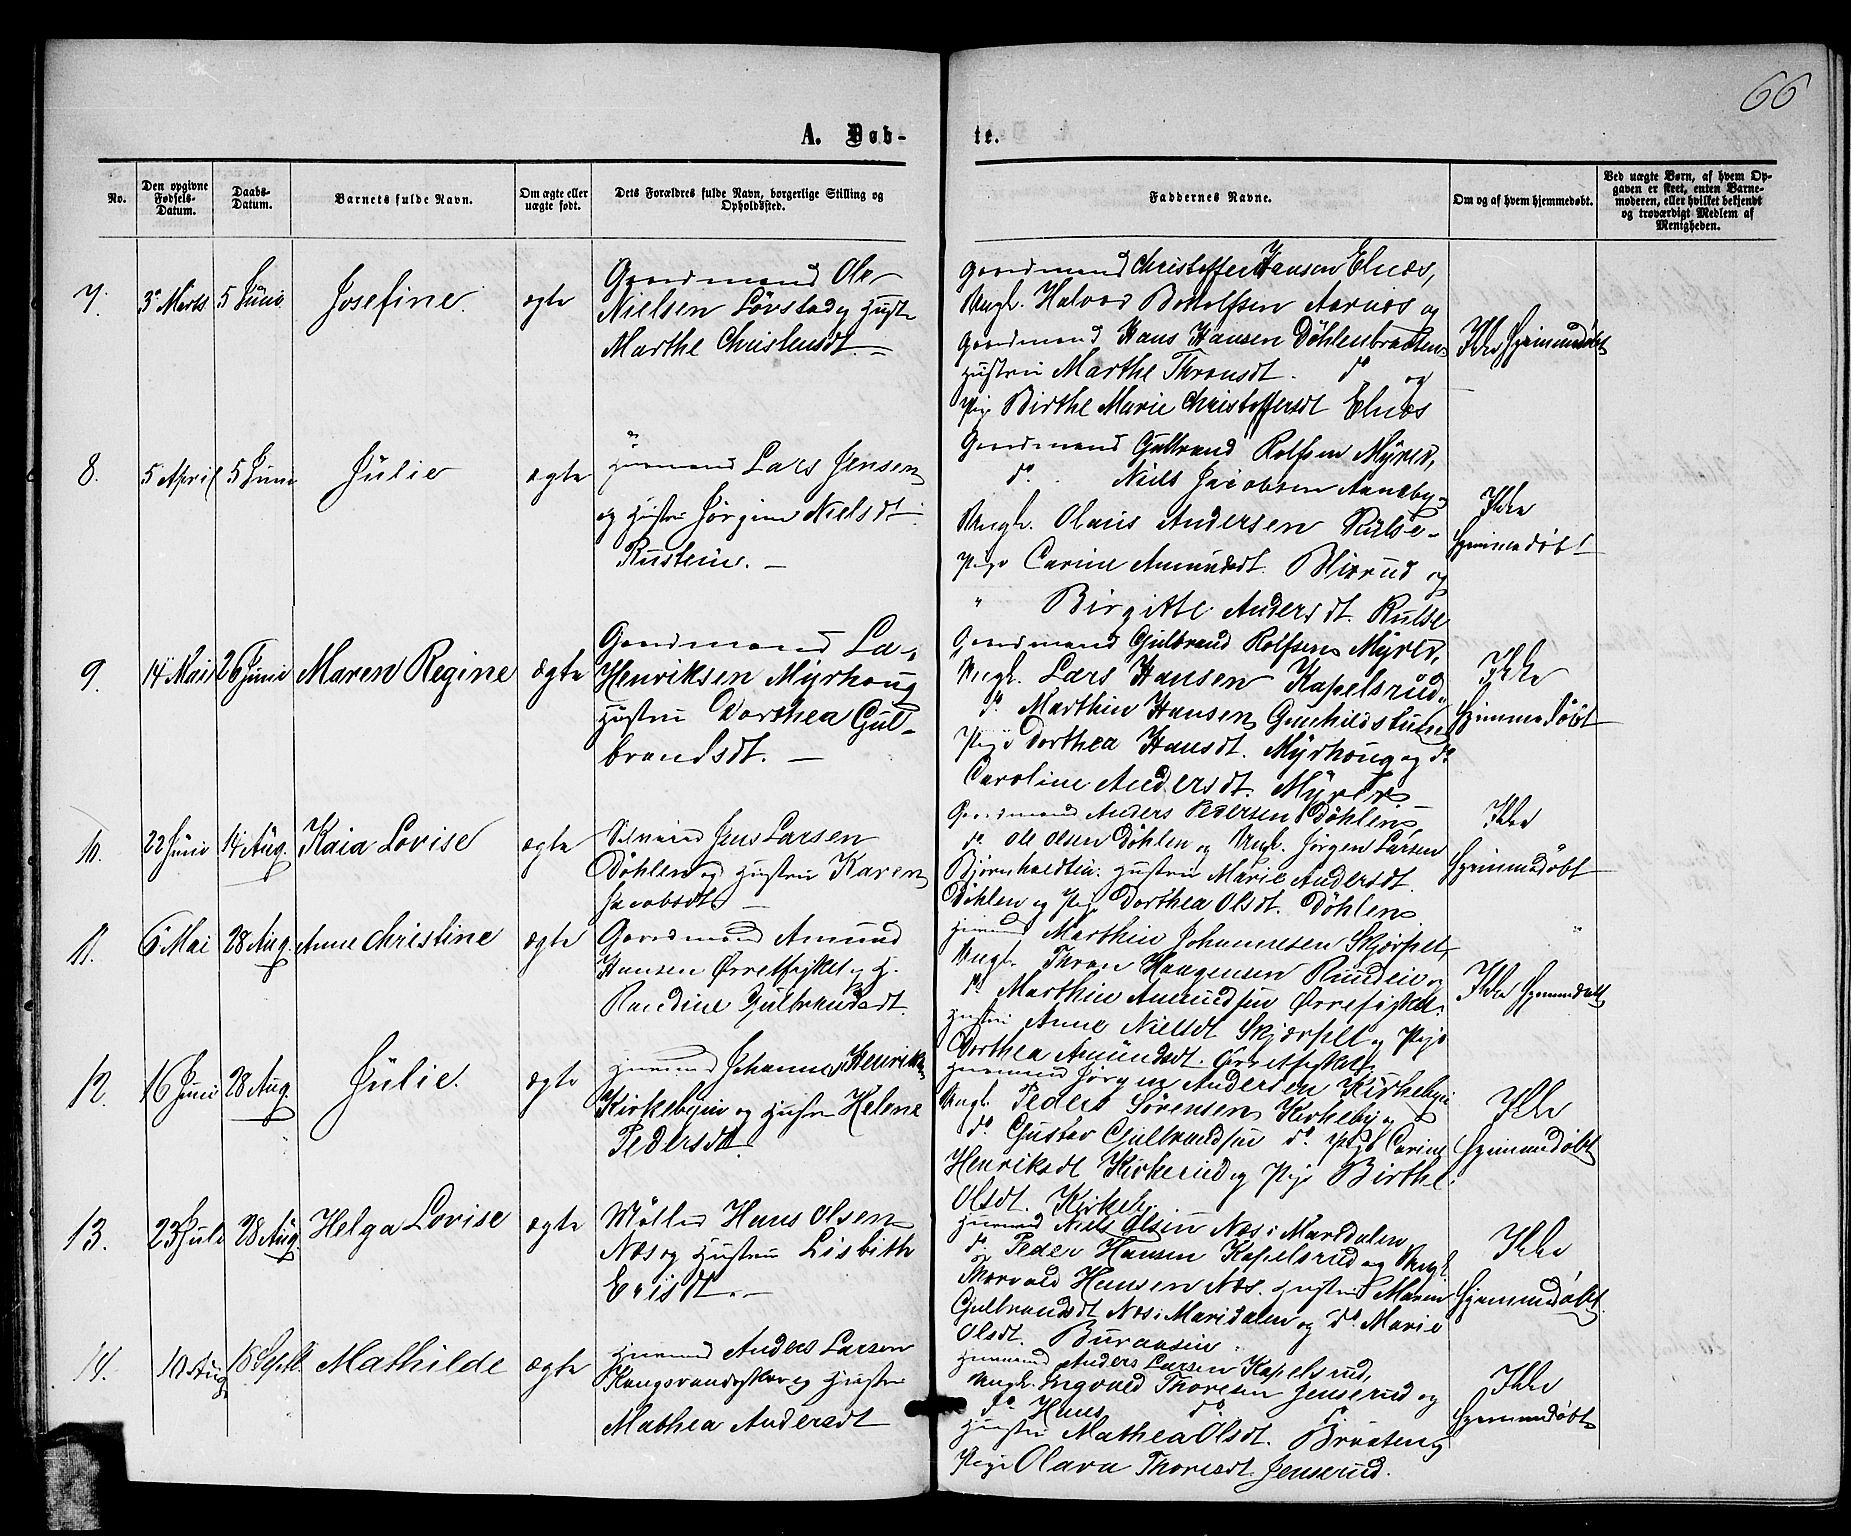 66
A. Døb-
te.
No.
Den opgivne Fødsels-Datum.
Daabs-Datum.
Barnets fulde Navn.
Om ægte eller uægte født.
Dets Forældres fulde Navn, borgerlige Stilling og Opholdssted.
Faddernes Navne.
Om og af hvem hjemmedøbt.
Ved uægte Børn, af hvem Op-
gaven er skeet, enten Barne-
moderen, eller hvilket bekjendt
og troværdigt Medlem af
Menigheden.
7.
3. Marts
5 Juni
Josefine.
ægte
Gaardmand Ole
Nielsen Løvstad og Hustr
Marthe Christensdt.
Gaardmand Christoffer Hansen Elnæs,
Ungk. Halvor Bottolfsen Aarnæs og
Gaardmand Hans Hansen Döhlenbraaten
Hustru Marthe Thronsdt. do og
Pige Birthe Marie Christoffersdt Elnæs
Ikke Hjemmedøbt
8.
5 April
5 Juni
Jülie
ægte
Huusmand Lars Jensen
og Hustru Jörgine Nielsdt.
Rustein.
Gaardmand Gulbrand Rolfsen Myrer,
do. Niels Jacobsen Aaneby
Ungk. Olaus Andersen Rulse
Pige Carine Amundsdt. Blixrud og
" Birgitte Andersdt. Rulse
Ikke
Hjemmedøbt
9.
14 Mai
26 Juni
Maren Regine
ægte
Gaardmand La
Henriksen Myrhoug
Hustru Dorthea Gul-
brandsdt.
Gaardmand Gulbrand Rolfsen Myrer,
Ungk. Lars Hansen Kapelsrud
do. Marthin Hansen Gunhildstuen
Pige Dorthea Hansdt. Myrhoug og do
Caroline Andersdt. Myrer
Ikke
Hjemmedøbt
10.
22 Juni
14 Aug.
Kaia Lovise
ægte
Jens Larsen
Döhlen og Hustru Karen
Jacobsdt
Gaardmand Anders Pedersen Döhlen,
do. Ole Olsen Döhlen og Ungk. Jörgen Larsen
Bjørnholdtin. Hustru Marie Andersdt.
Döhlen og Pige Dorthea Olsdt. Döhlen
Ikke
Hjemmedøbt
11.
6 Mai
28 Aug.
Anne Christine
ægte
Gaardmand Amund
Hansen Ørretfisket og H.
Randine Gulbrandsdt.
Huusmand Marthin Johannesen Skjærpet,
Ungk. Thron Haagensen Rundein og
do. Marthin Amundsen Ørrefisket.
Hustru Anne Nielsdt Skjærpet og Pige
Dorthea Amundsdt. Ørretfisket
Ikke Hjemmedøbt
12.
16 Juni
28 Aug.
Jülie.
ægte
Huusmand Johannes Henriks
Kirkebyein og Hustru Helene
Pedersdt.
Huusmand Jørgen Andersen Kirkebyein
Ungk. Peder Sørensen Kirkeby og
do. Gustav Gulbrandsen do. Pige Carine
Henriksdt Kirkerud og Pige Birthe
Olsdt. Kirkeby
Ikke
Hjemmedøbt
13.
23 Juli
28 Aug.
Helga Lovise
ægte
Møller Hans Olsen
Næs og Hustru Lisbeth
Erisdt.
Huusmand Niels Olsen Næs i Maridalen
do. Peder Hansen Kapelsrud og Ungk.
Thorvald Hansen Næs. Hustru Maren
Gulbrandsdt Næs i Maridalen og do Marie
Olsdt. Buraasein.
Ikke
Hjemmedøbt
14.
10 Aug
18 Septb.
Mathilde
ægte
Huusmand Anders Larsen
og Hustru
Mathea Andersdt
Huusmand Anders Larsen Kapelsrud,
Ungk. Ingvald Thoresen Jenserud og
do. Hans do
Hustru Mathea Olsdt. Braaten og
Pige Olava Thoresdt. Jenserud.
Ikke
Hjemmedøbt